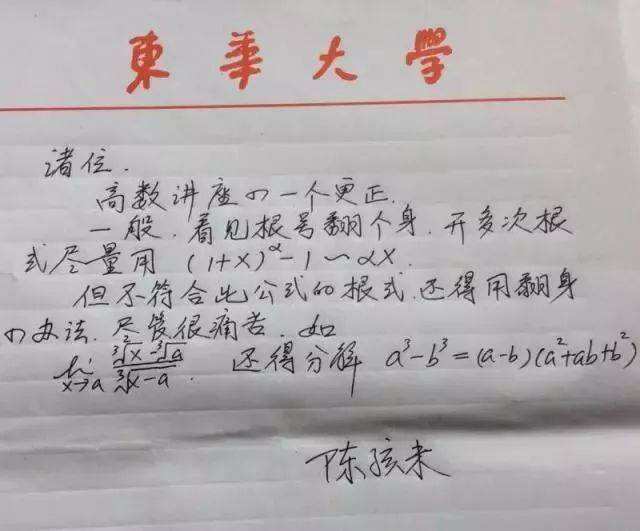 東華大學
诸位.
高数讲座の一个更正.
一般.看见根号翻个身.开多次根
式尽量用 (1+x)^α-1~αx.
但不符合此公式的根式.还得用翻身
の办法.尽管很痛苦.如
lim x→a (∛x-∛a)/(∛x-a). 还得分解 a³-b³=(a-b)(a²+ab+b²)
陈孩未